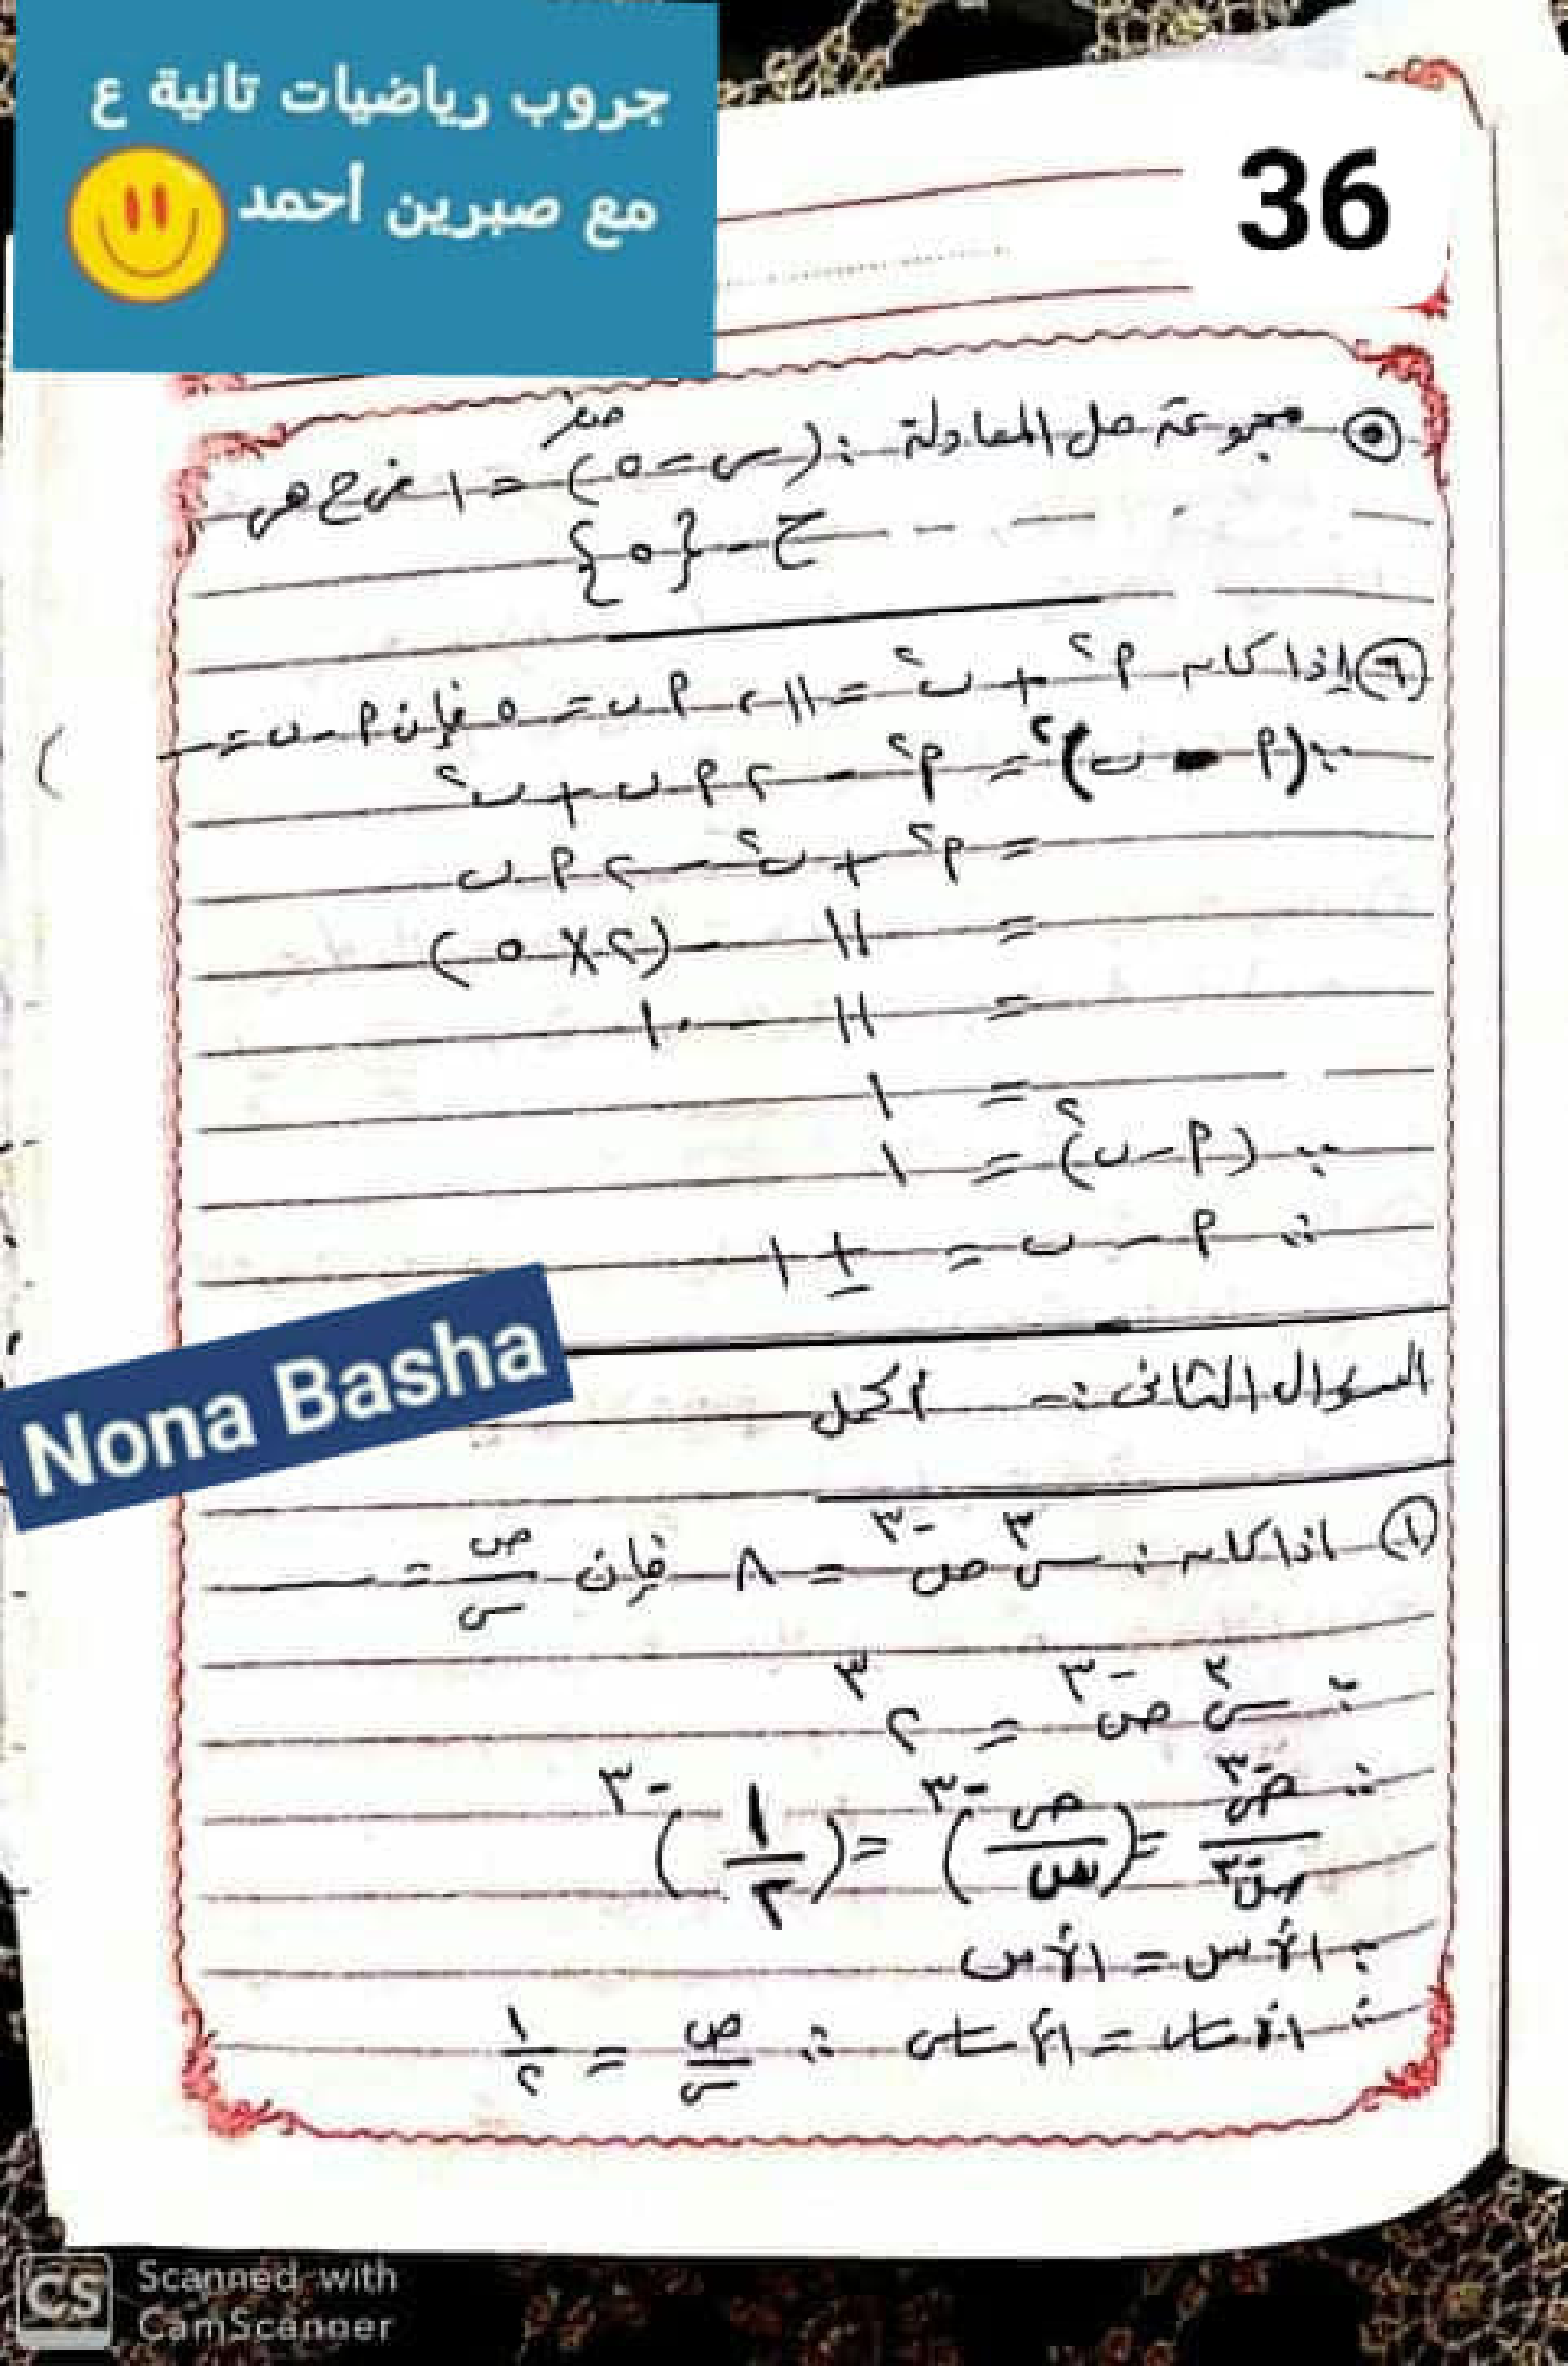 جروب رياضيات تانية ع
مع صبرين أحمد
36
٥ مجموعة حل المعادلة : (س - ٥)صفر = ١ فى ح هى
ح - {٥}
٦ إذا كان م٢ + ب٢ = ١١ ، م ب = ٥ فإن م - ب =
∵ (م - ب)٢ = م٢ - ٢ م ب + ب٢
= م٢ + ب٢ - ٢ م ب
= ١١ - (٢ × ٥)
= ١١ - ١٠
= ١
∵ (م - ب)٢ = ١
∴ م - ب = ± ١
السؤال الثانى :- أكمل
Nona Basha
١ اذا كان : س٣ ص-٣ = ٨ فإن ص/س =
∵ س٣ ص-٣ = ٢٣
∴ ص-٣/س-٣ = (ص/س)-٣ = (١/٢)-٣
∵ الأس = الأس
∴ الأساس = الأساس ∴ ص/س = ١/٢
CS Scanned with
CamScanner